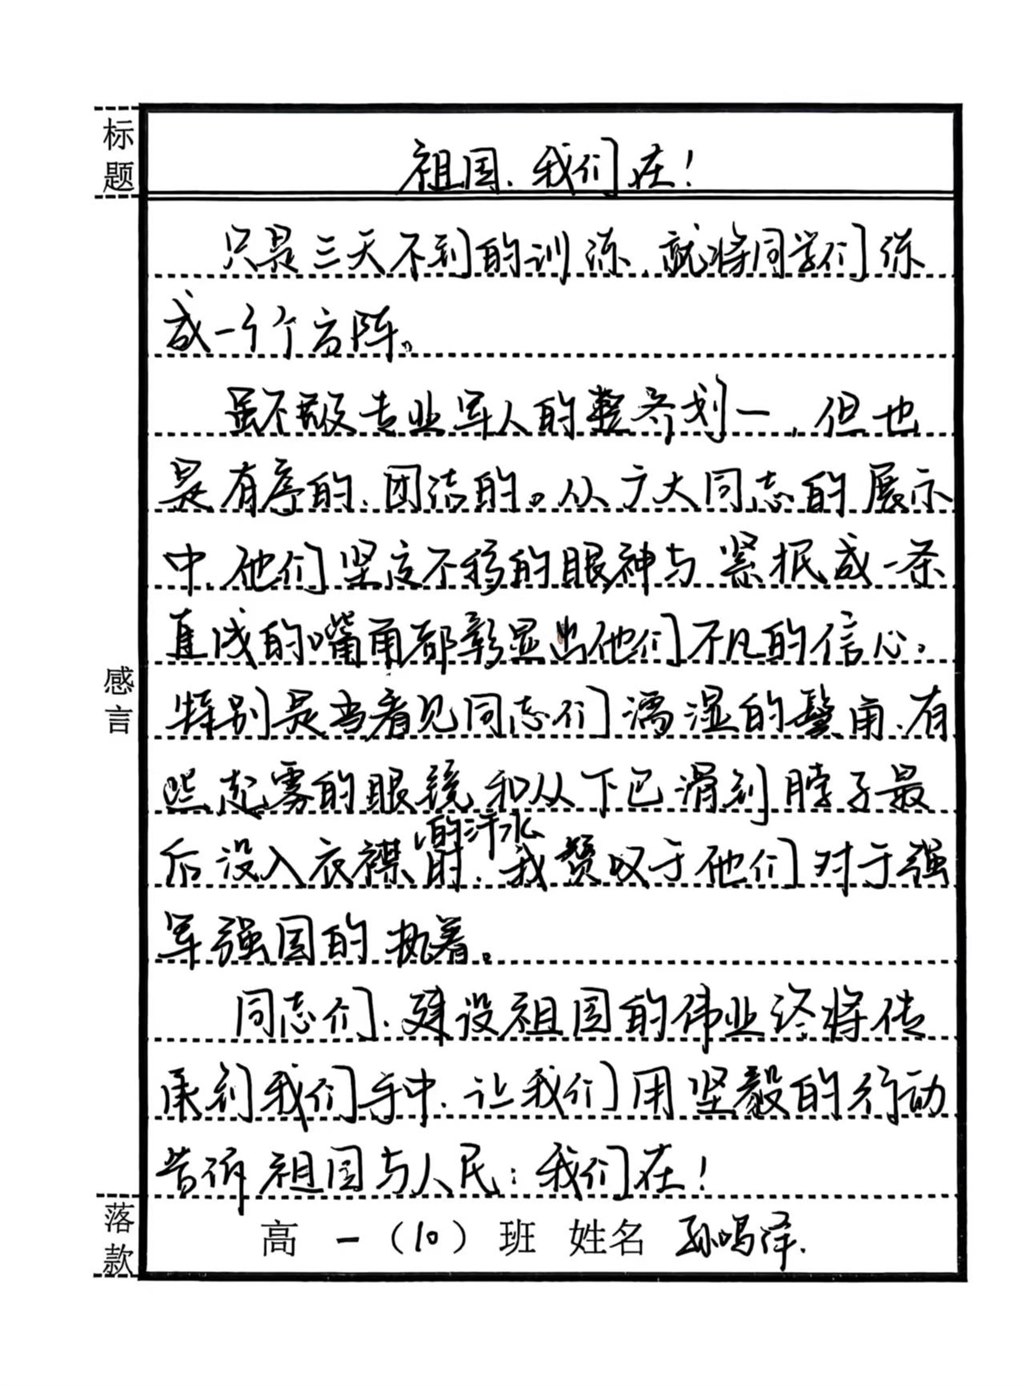 标题
祖国、我们在！
只是三天不到的训练，就将同学们练
成一个个方阵。
虽不敌专业军人的整齐划一，但也
是有序的、团结的。从广大同志的展示
中，他们坚定不移的眼神与紧抿成一条
直线的嘴角都彰显出他们不凡的信心。
特别是当看见同志们濡湿的鬓角、有
些起雾的眼镜和从下巴滑到脖子最
后没入衣襟的汗水时，我赞叹于他们对于强
军强国的执着。
同志们，建设祖国的伟业终将传
承到我们手中，让我们用坚毅的行动
告诉祖国与人民：我们在！
感言
落款
高一（10）班 姓名 孙鸣泽.